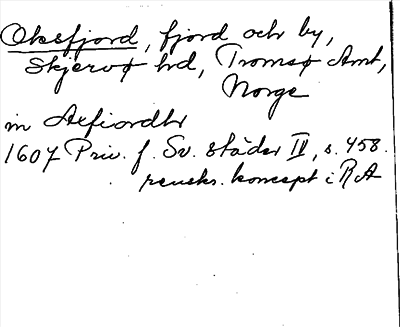 Oksfjord, fjord och by,
Skjervø hd, Tromsø Amt,
Norge
in Axfiordhr
1607 Priv. f. Sv. städer II, s. 458.
renskr. koncept i RA